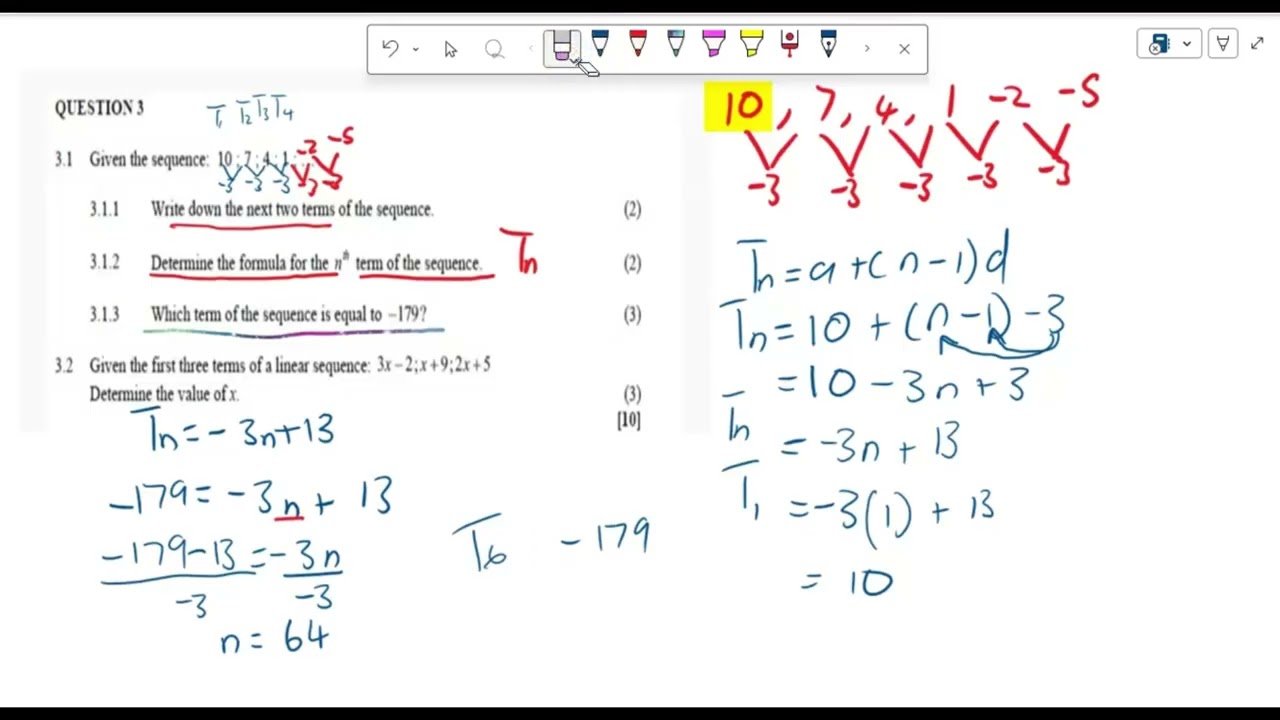 QUESTION 3
T1 T2 T3 T4
-2 -5
3.1 Given the sequence: 10 ; 7 ; 4 ; 1 ; ...
-3 -3 -3 -3 -3
3.1.1 Write down the next two terms of the sequence. (2)
3.1.2 Determine the formula for the nth term of the sequence. (2)
Tn
3.1.3 Which term of the sequence is equal to −179? (3)
3.2 Given the first three terms of a linear sequence: 3x−2; x+9; 2x+5
Determine the value of x. (3)
[10]
Tn = -3n+13
-179 = -3n + 13
-179-13 = -3n
-3 -3
n = 64
T6 -179
10, 7, 4, 1 -2 -5
-3 -3 -3 -3 -3
Tn = a+(n-1)d
Tn = 10 + (n-1)-3
= 10 - 3n + 3
Tn = -3n + 13
T1 = -3(1) + 13
= 10